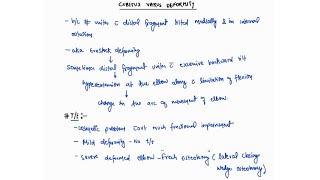 CUBITUS VARUS DEFORMITY
- b/c # unites c̄ distal fragment tilted medially & in internal
rotation
- aka Gunstock deformity
sometimes distal fragment unites c̄ excessive backward tilt
hyperextension at the elbow along c̄ limitation of flexion
change in the arc of movement of elbow
# T/t :-
- cosmetic problem (not much functional impairment
- Mild deformity - No t/t
- Severe deformed elbow - French osteotomy (lateral closing
wedge osteotomy)